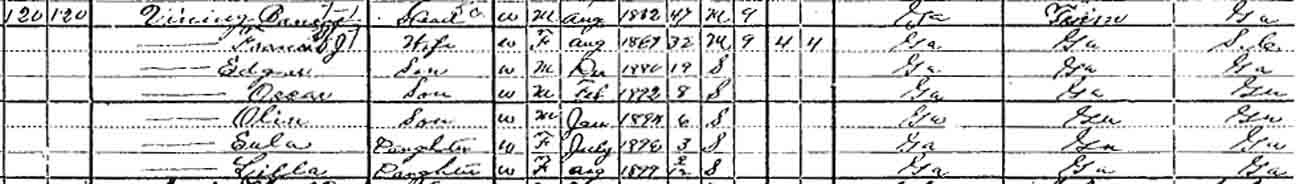 120 120 Vining Head W M Aug 1882 47 M 9 Ga Ga
Wife W F Aug 1867 32 M 9 4 4 Ga Ga S.C.
Edgar Son W M 1880 19 S Ga Ga Ga
Oscar Son W M Feb 1892 8 S Ga Ga Ga
Olin Son W M Jan 6 S Ga Ga Ga
Eula Daughter W F July 3 S Ga Ga Ga
Daughter W F Aug 1899 S Ga Ga Ga